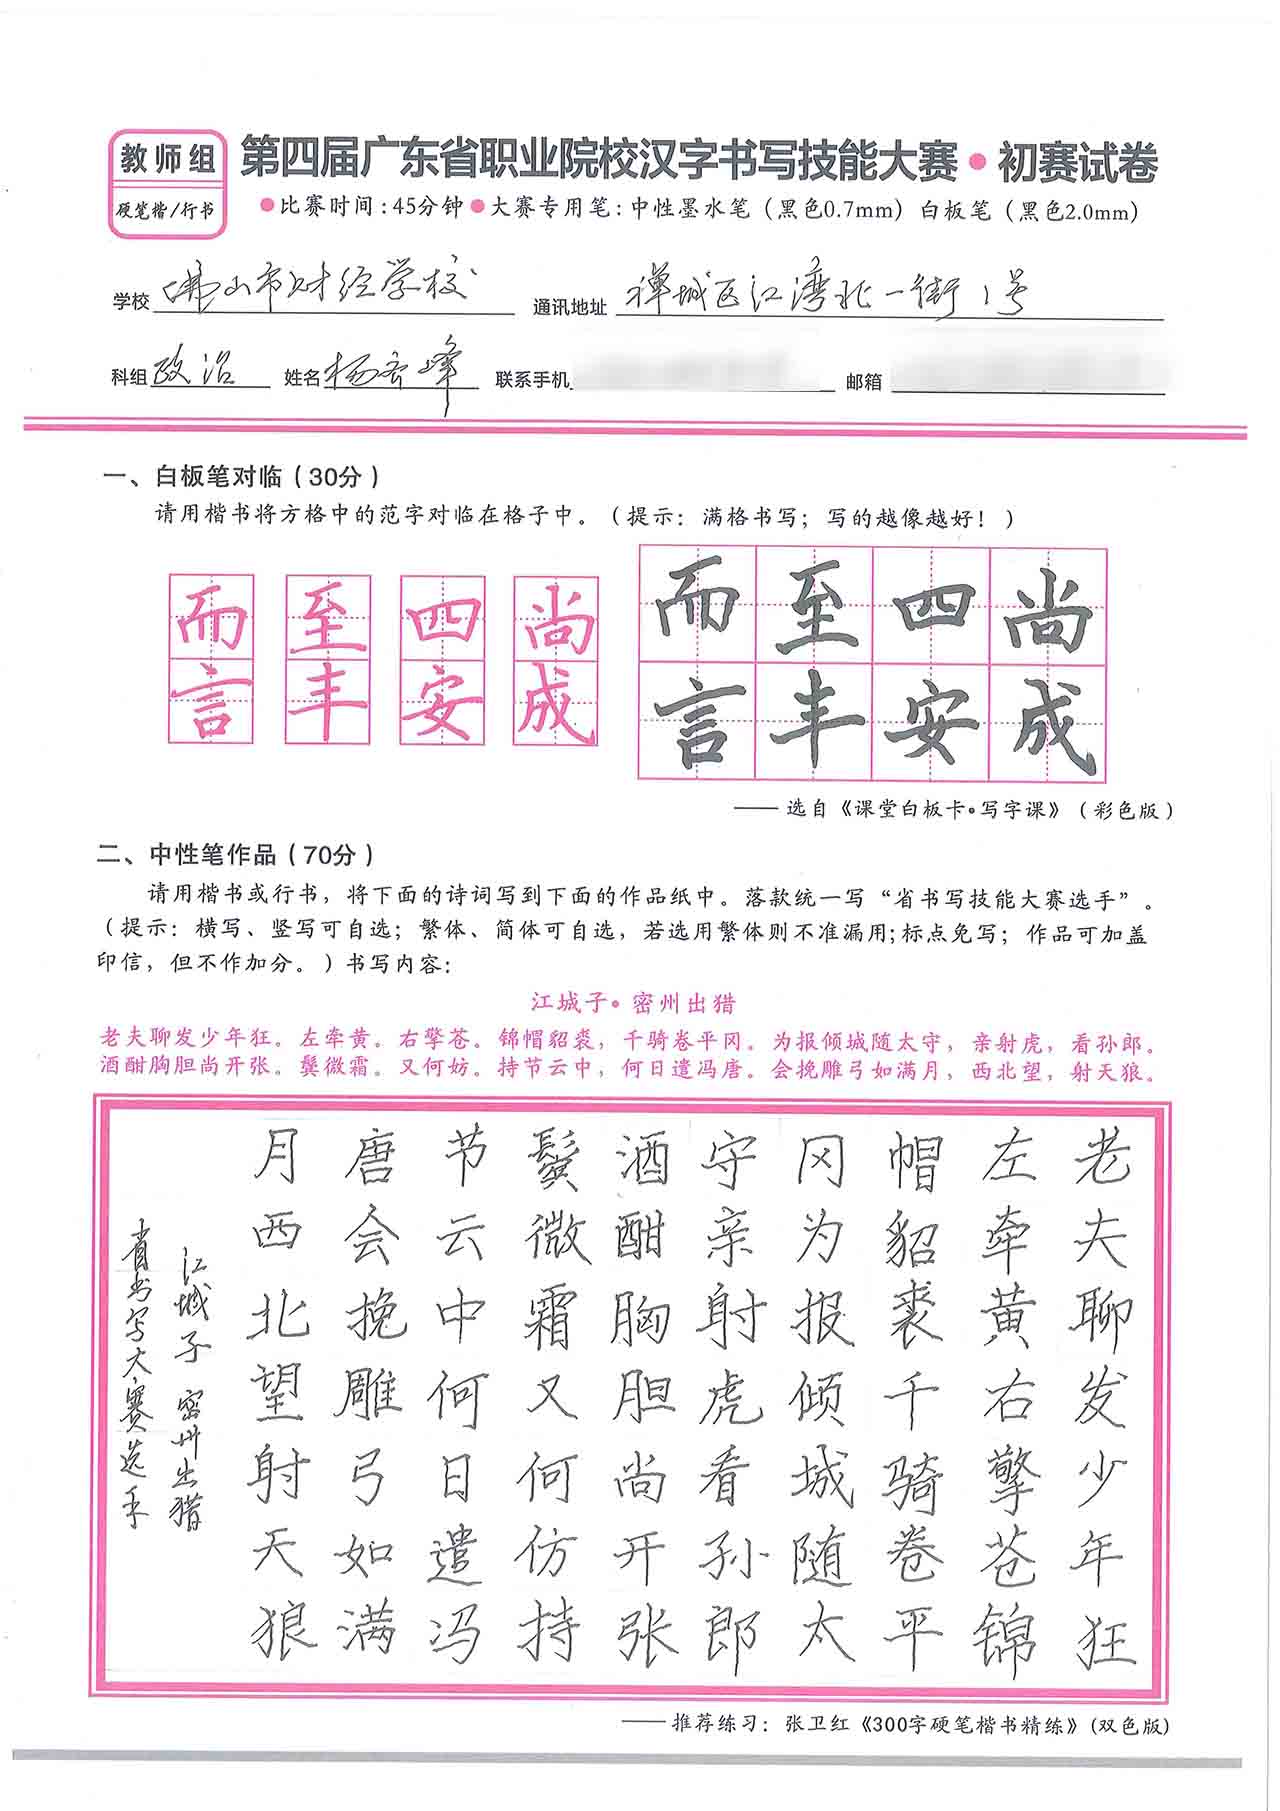 教师组
硬笔楷/行书
第四届广东省职业院校汉字书写技能大赛•初赛试卷
●比赛时间:45分钟●大赛专用笔:中性墨水笔(黑色0.7mm)白板笔(黑色2.0mm)
学校 佛山市财经学校 通讯地址 禅城区江湾北一街1号
科组 政治 姓名 杨 峰 联系手机 邮箱
一、白板笔对临(30分)
请用楷书将方格中的范字对临在格子中。(提示:满格书写;写的越像越好!)
而 至 四 尚
言 丰 安 成
而 至 四 尚
言 丰 安 成
——选自《课堂白板卡•写字课》(彩色版)
二、中性笔作品(70分)
请用楷书或行书,将下面的诗词写到下面的作品纸中。落款统一写“省书写技能大赛选手”。
(提示:横写、竖写可自选;繁体、简体可自选,若选用繁体则不准漏用;标点免写;作品可加盖
印信,但不作加分。)书写内容:
江城子•密州出猎
老夫聊发少年狂。左牵黄。右擎苍。锦帽貂裘,千骑卷平冈。为报倾城随太守,亲射虎,看孙郎。
酒酣胸胆尚开张。鬓微霜。又何妨。持节云中,何日遣冯唐。会挽雕弓如满月,西北望,射天狼。
老夫聊发少年狂
左牵黄右擎苍锦
帽貂裘千骑卷平
冈为报倾城随太
守亲射虎看孙郎
酒酣胸胆尚开张
鬓微霜又何仿持
节云中何日遣冯
唐会挽雕弓如满
月西北望射天狼
江城子 密州出猎
省书写大赛选手
——推荐练习:张卫红《300字硬笔楷书精练》(双色版)